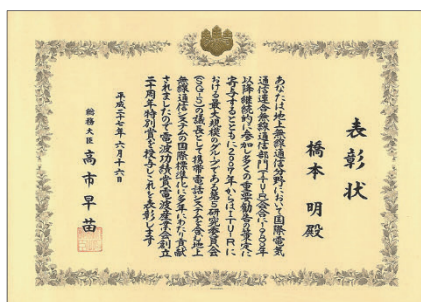 表彰状
橋本 明殿
あなたは地上無線通信分野において国際電気
通信連合無線通信部門(ITU-R)会合に1980年
以降継続的に参加し多くの重要勧告の策定に
寄与するとともに2007年からはITU-Rに
おける最大規模のグループである第5研究委員会
(SG5)の議長として携帯電話システムを含む地上
無線通信システムの国際標準化に多年にわたり貢献
されましたので電波功績賞電波産業会創立
二十周年特別賞を授与しこれを表彰します
平成二十七年 六月十六日
総務大臣 高市早苗